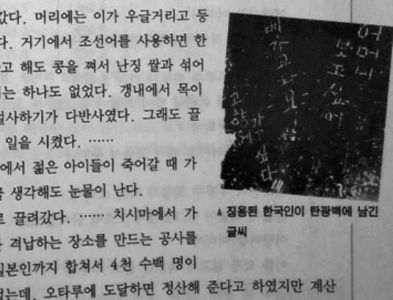 갔다. 머리에는 이가 우글거리고 등
다. 거기에서 조선어를 사용하면 한
고 해도 콩을 쪄서 난징 쌀과 섞어
는 하나도 없었다. 갱내에서 목이
설사하기가 다반사였다. 그래도 끌
일을 시켰다. ……
에서 젊은 아이들이 죽어갈 때 가
생각해도 눈물이 난다.
로 끌려갔다. …… 치시마에서 가
격납하는 장소를 만드는 공사를
일본인까지 합쳐서 4천 수백 명이
는데, 오타루에 도달하면 정산해 준다고 하였지만 계산
어머니
보고싶어
배가고파요
고향에
가고싶다
▲ 징용된 한국인이 탄광벽에 남긴
글씨